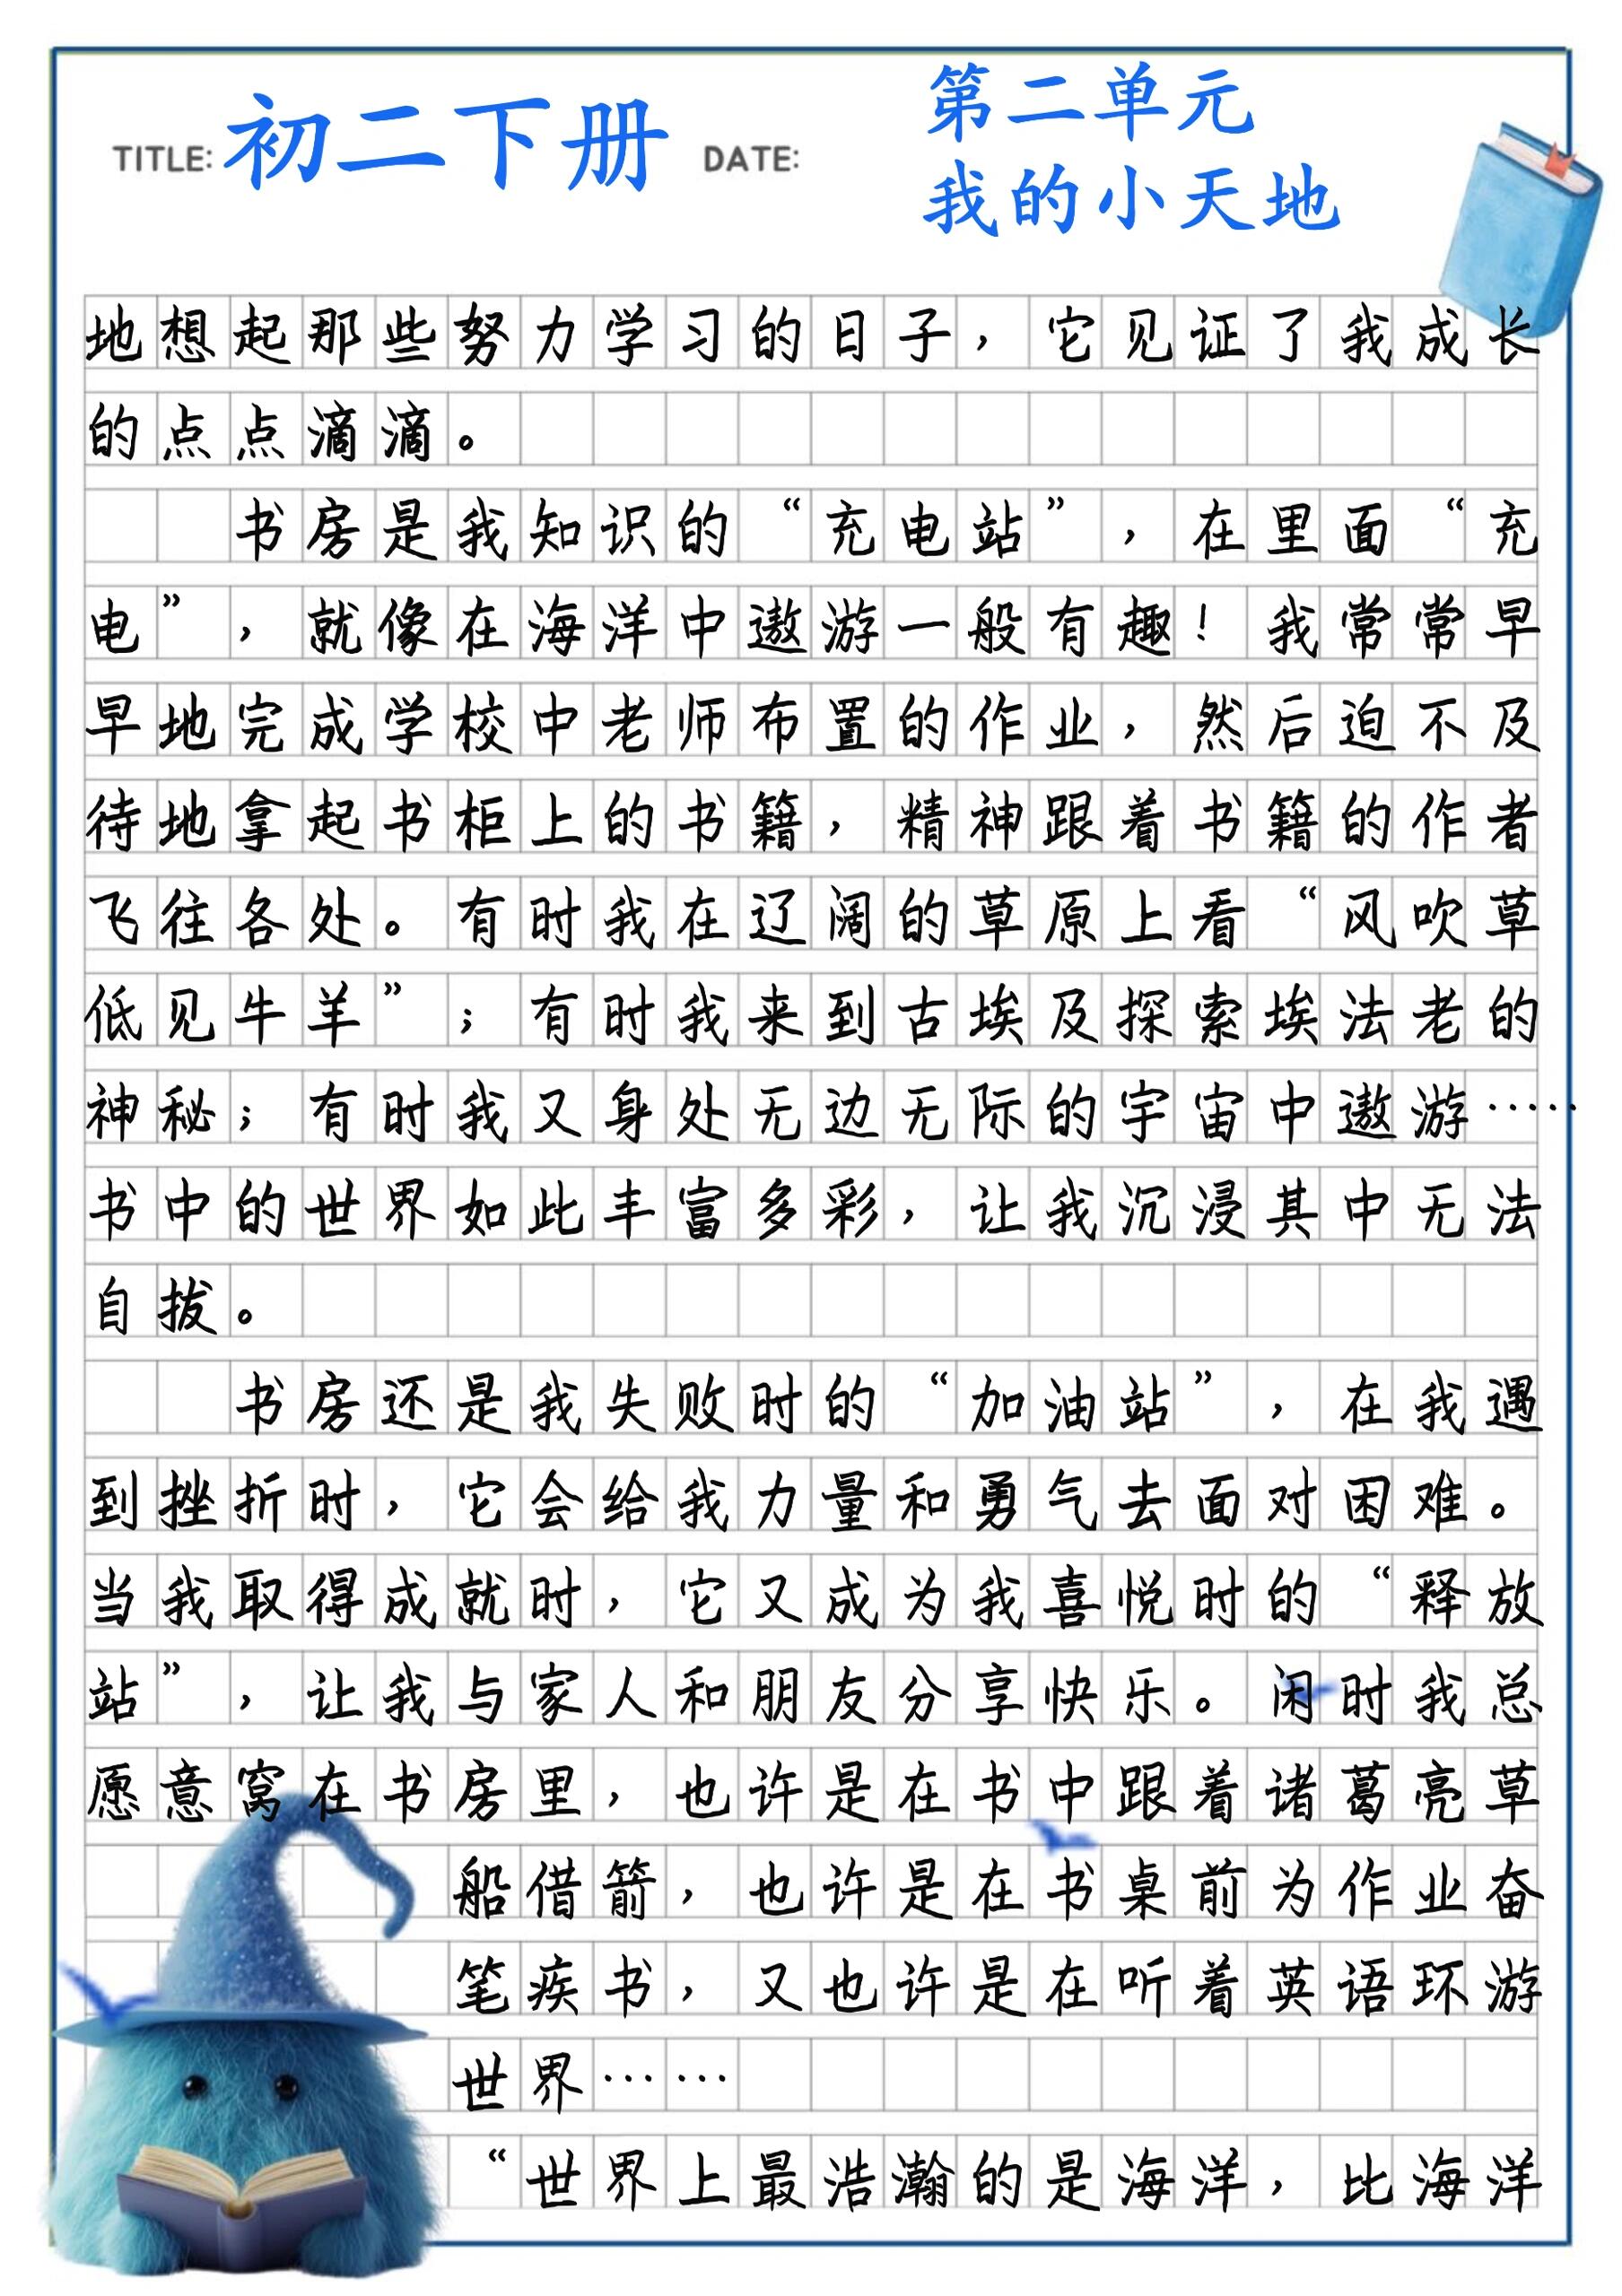 第二单元
TITLE: 初二下册 DATE:
我的小天地
地想起那些努力学习的日子，它见证了我成长
的点点滴滴。
书房是我知识的“充电站”，在里面“充
电”，就像在海洋中遨游一般有趣！我常常早
早地完成学校中老师布置的作业，然后迫不及
待地拿起书柜上的书籍，精神跟着书籍的作者
飞往各处。有时我在辽阔的草原上看“风吹草
低见牛羊”；有时我来到古埃及探索埃法老的
神秘；有时我又身处无边无际的宇宙中遨游……
书中的世界如此丰富多彩，让我沉浸其中无法
自拔。
书房还是我失败时的“加油站”，在我遇
到挫折时，它会给我力量和勇气去面对困难。
当我取得成就时，它又成为我喜悦时的“释放
站”，让我与家人和朋友分享快乐。闲时我总
愿意窝在书房里，也许是在书中跟着诸葛亮草
船借箭，也许是在书桌前为作业奋
笔疾书，又也许是在听着英语环游
世界……
“世界上最浩瀚的是海洋，比海洋